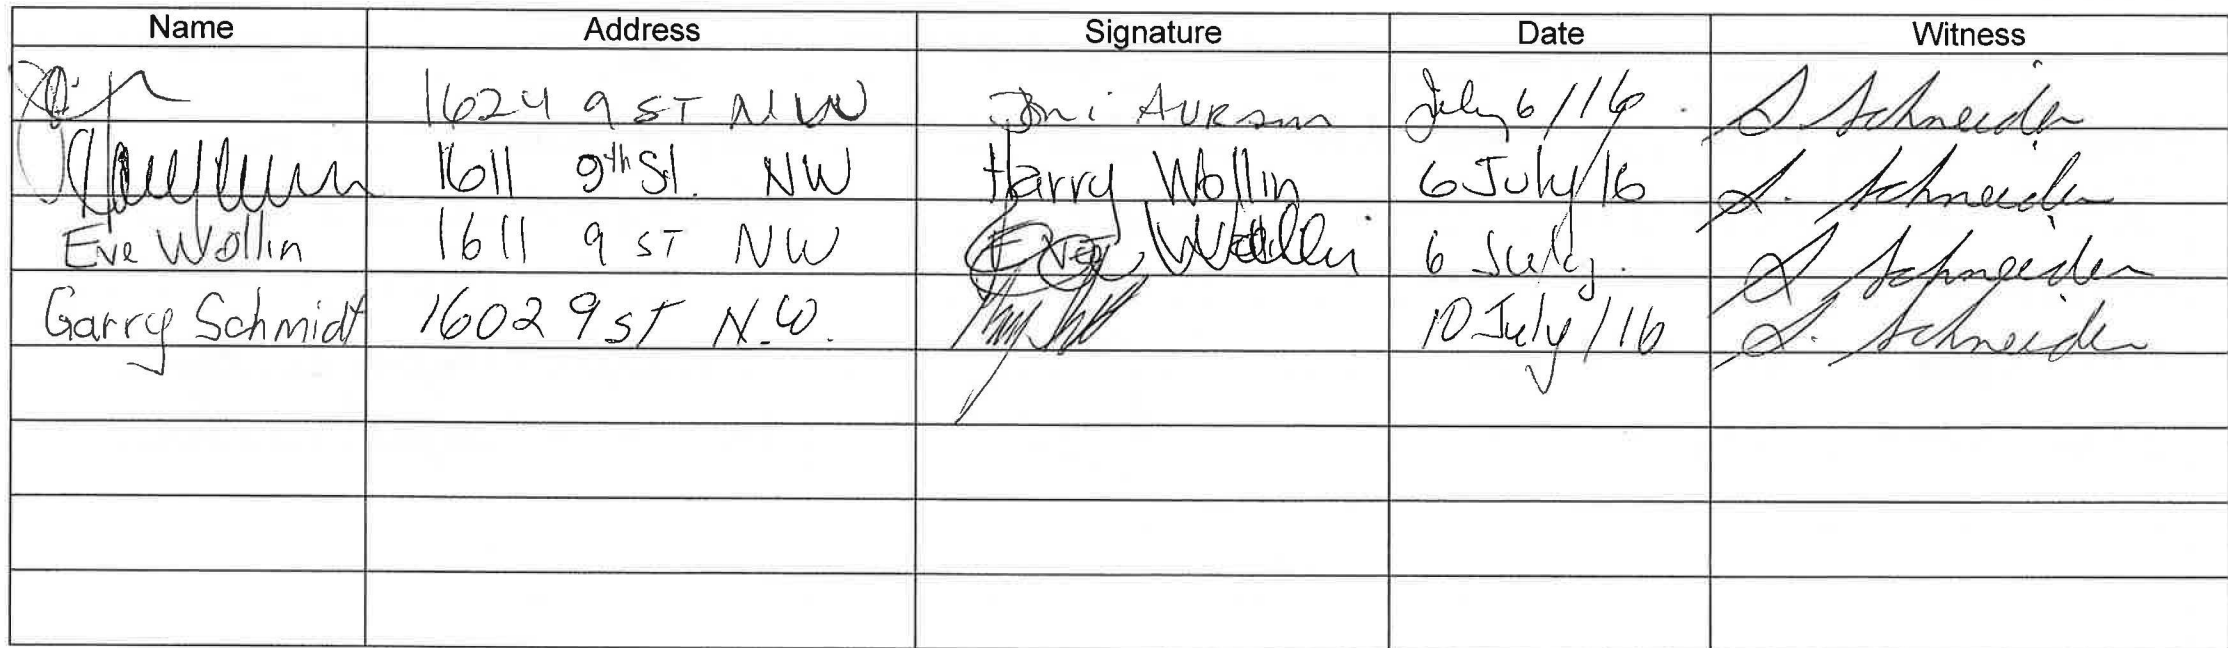 Name Address Signature Date Witness
1624 9 ST NW Joni July 6/16 S Schneider
1611 9th St. NW Harry Wollin 6 July/16 S. Schneider
Eve Wollin 1611 9 ST NW Eve Wollin 6 July. S Schneider
Garry Schmidt 1602 9 ST N.W. 10 July/16 S. Schneider